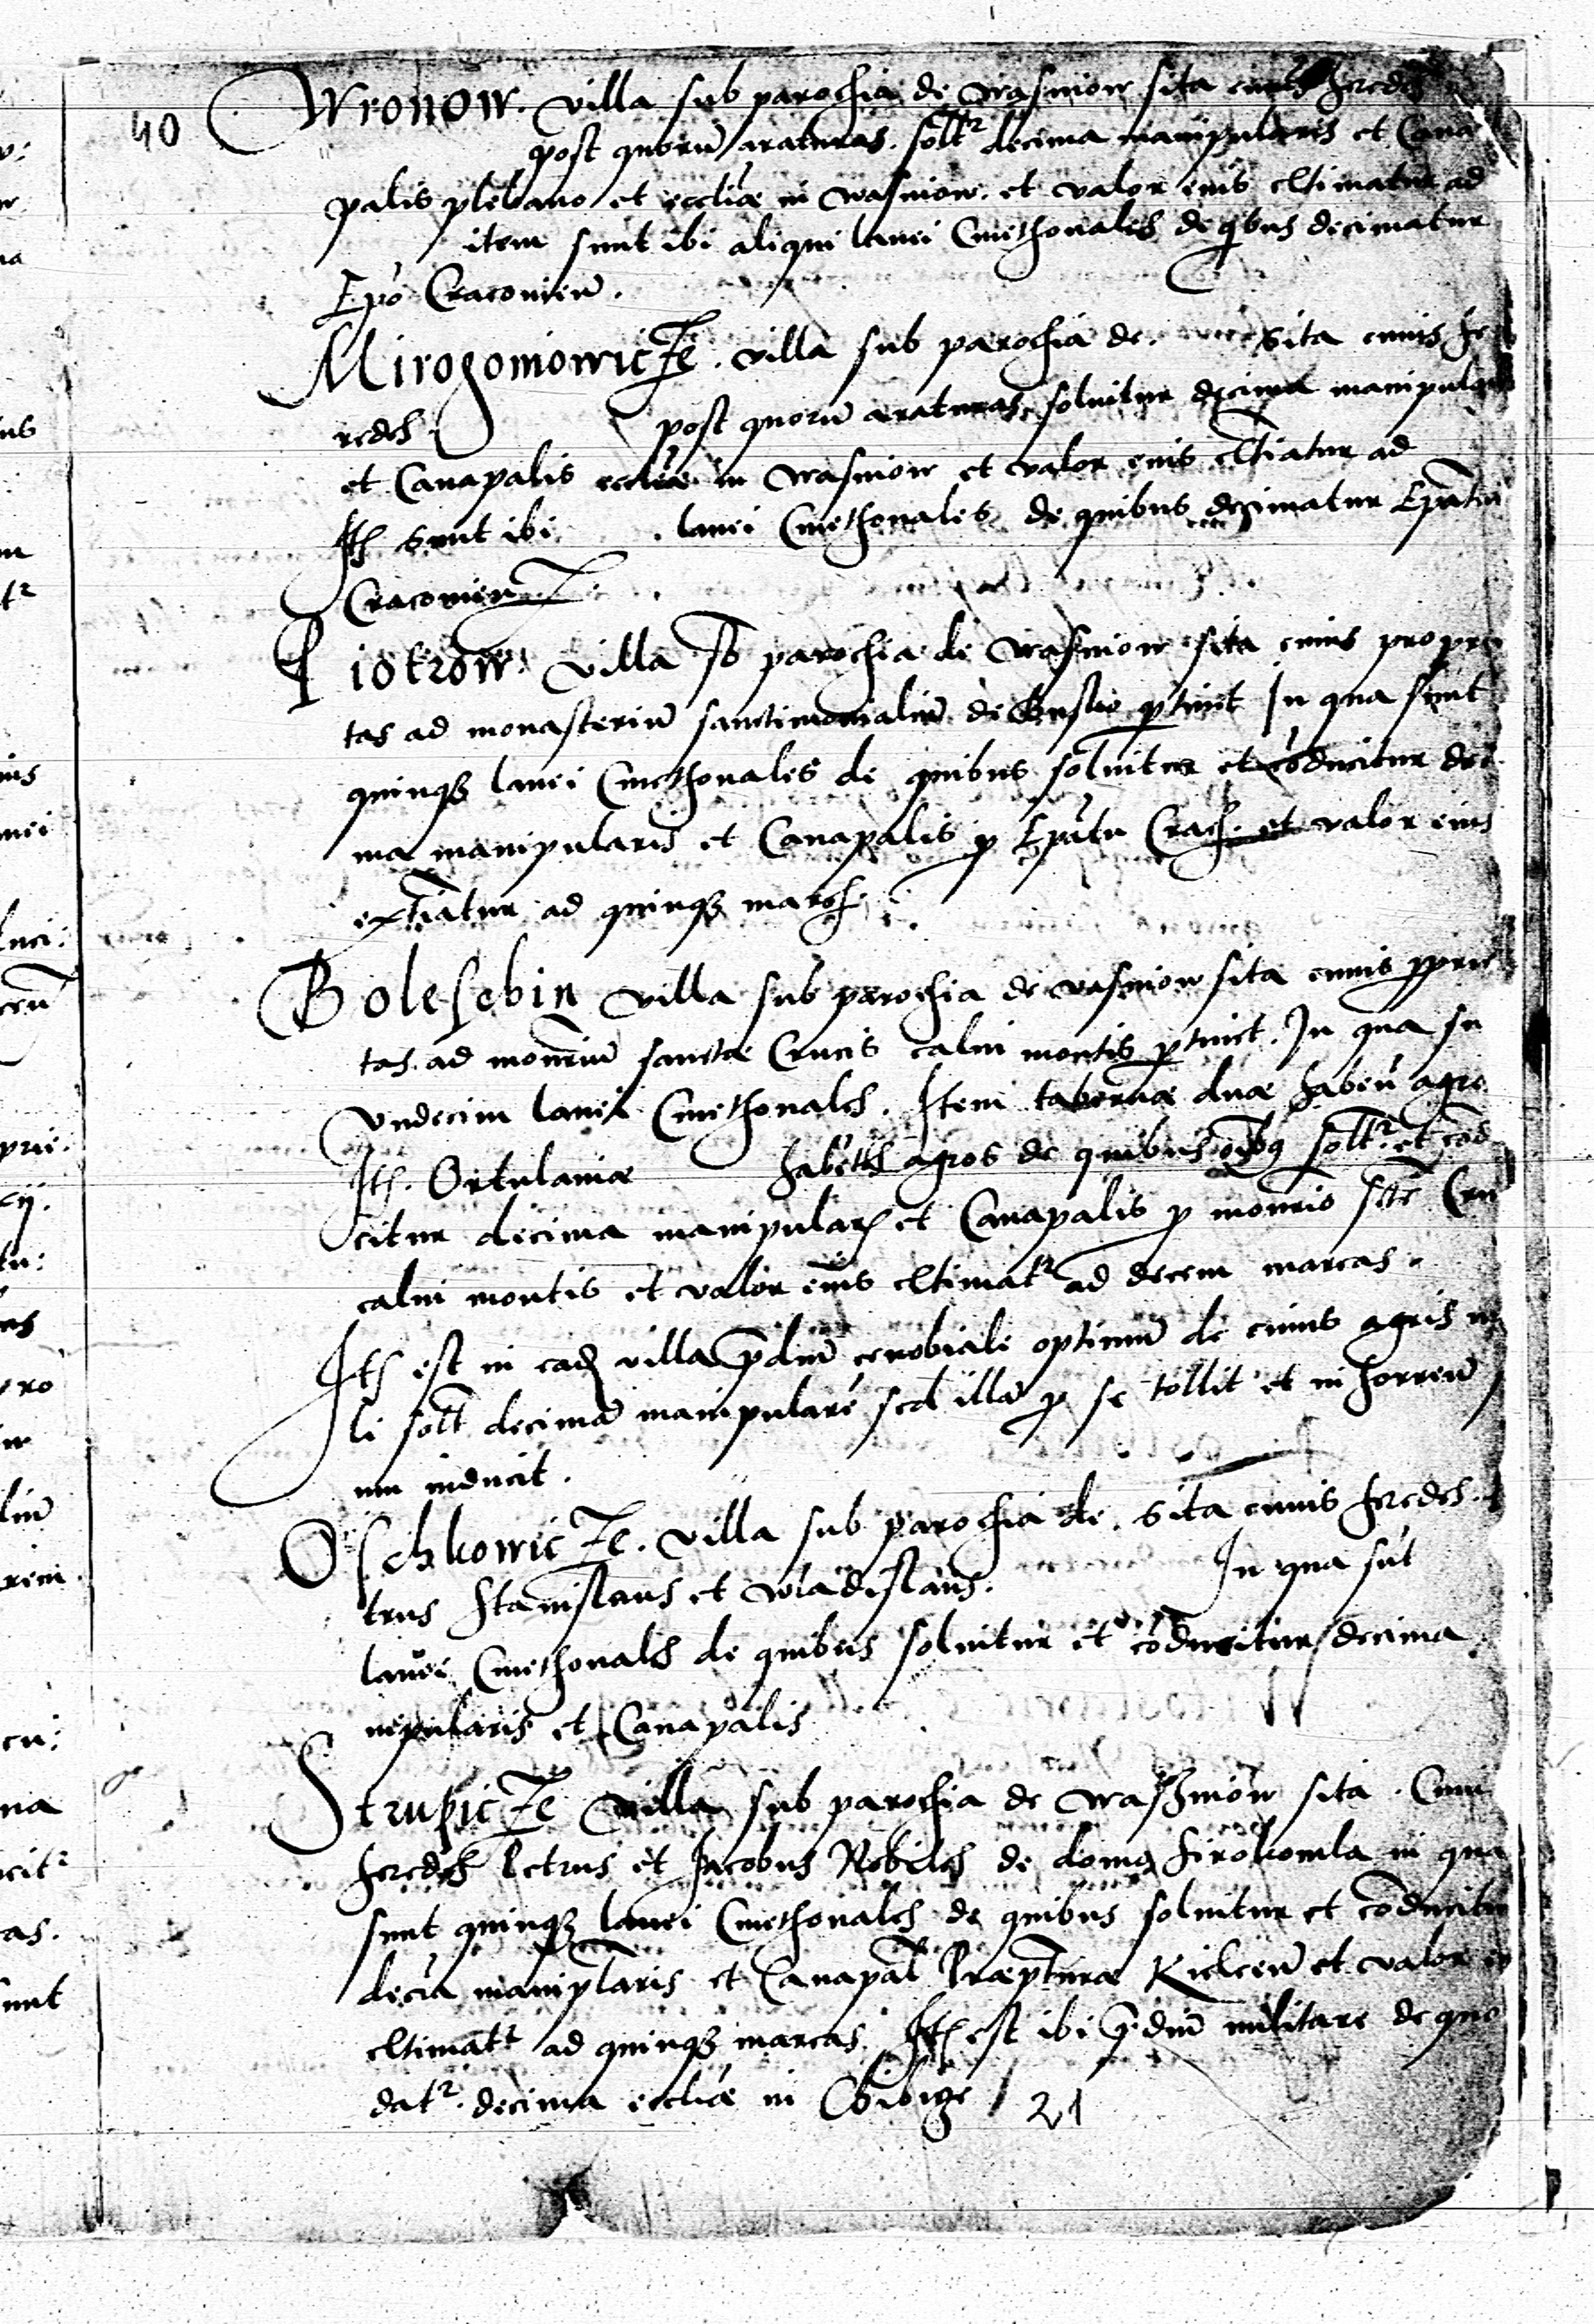 40
Wronow. villa sub parochia de Wasniow sita cuius heredes
post quorū araturas. soltr decima manipularis et Cana
palis plebano et eccliæ in Wasniow. et valor eius estimatur ad
item sunt ibi aliqui lanei Cmethonales de qbus decimatur
Epo Cracovien.
Mirogoniowicze. villa sub parochia de. sita cuius he
redes. post quorū araturas. solvitur decima manipula
et Canapalis eccliæ in Wasniow et valor eius estiatur ad
Itē sunt ibi . lanei Cmethonales de quibus decimatur Epatui
Cracovien.
Piotrow. villa sb parochia de Wasniow sita cuius proprie
tas ad monasteriū sanctimonialiū de Busko ptinet In qua sunt
quinqȝ lanei Cmethonales de quibus solvitur et cōducitur deci
ma manipularis et Canapalis p Epatu Crac. et valor eius
extiatur ad quinqȝ march.
Boleschin villa sub parochia de Wasniow sita cuius pprie
tas. ad monriū sanctæ Crucis calui montis ptinet. In qua su
vndecim lanei Cmethonales. Item tabernæ duæ haben agros
Itē. Ortulaniæ habētes agros de quibus oībus soltr et cōd
citur decima manipularis et Canapalis p monrio sctē Cru
calui montis et valor eius estimatr ad decem marcas.
Itē est in eadē villa pdiū cenobiale optimū de cuius agris n
li solt decimā manipularē sed illā p se tollit et in horreū
um inducit.
Oschkowicze. villa sub parochia de. sita cuius heredes.
trus Stanislaus et Wladislaus. In qua sūt
lanei Cmethonales de quibus solvitur et cōducitur decima
nipularis et Canapalis
Strupicze villa sub parochia de Waszniow sita. Cuiu
heredes Petrus et Jacobus Nobiles de domo Sirokomla in qua
sunt quinqȝ lanei Cmethonales de quibus solvitur et cōducitur
decia maniplaris et Canapal Præpturæ Kielceñ et valor ei
estimatr ad quinqȝ marcas. Itē est ibi prediū militare de quo
datr. decima eccliæ in Chibicze
21